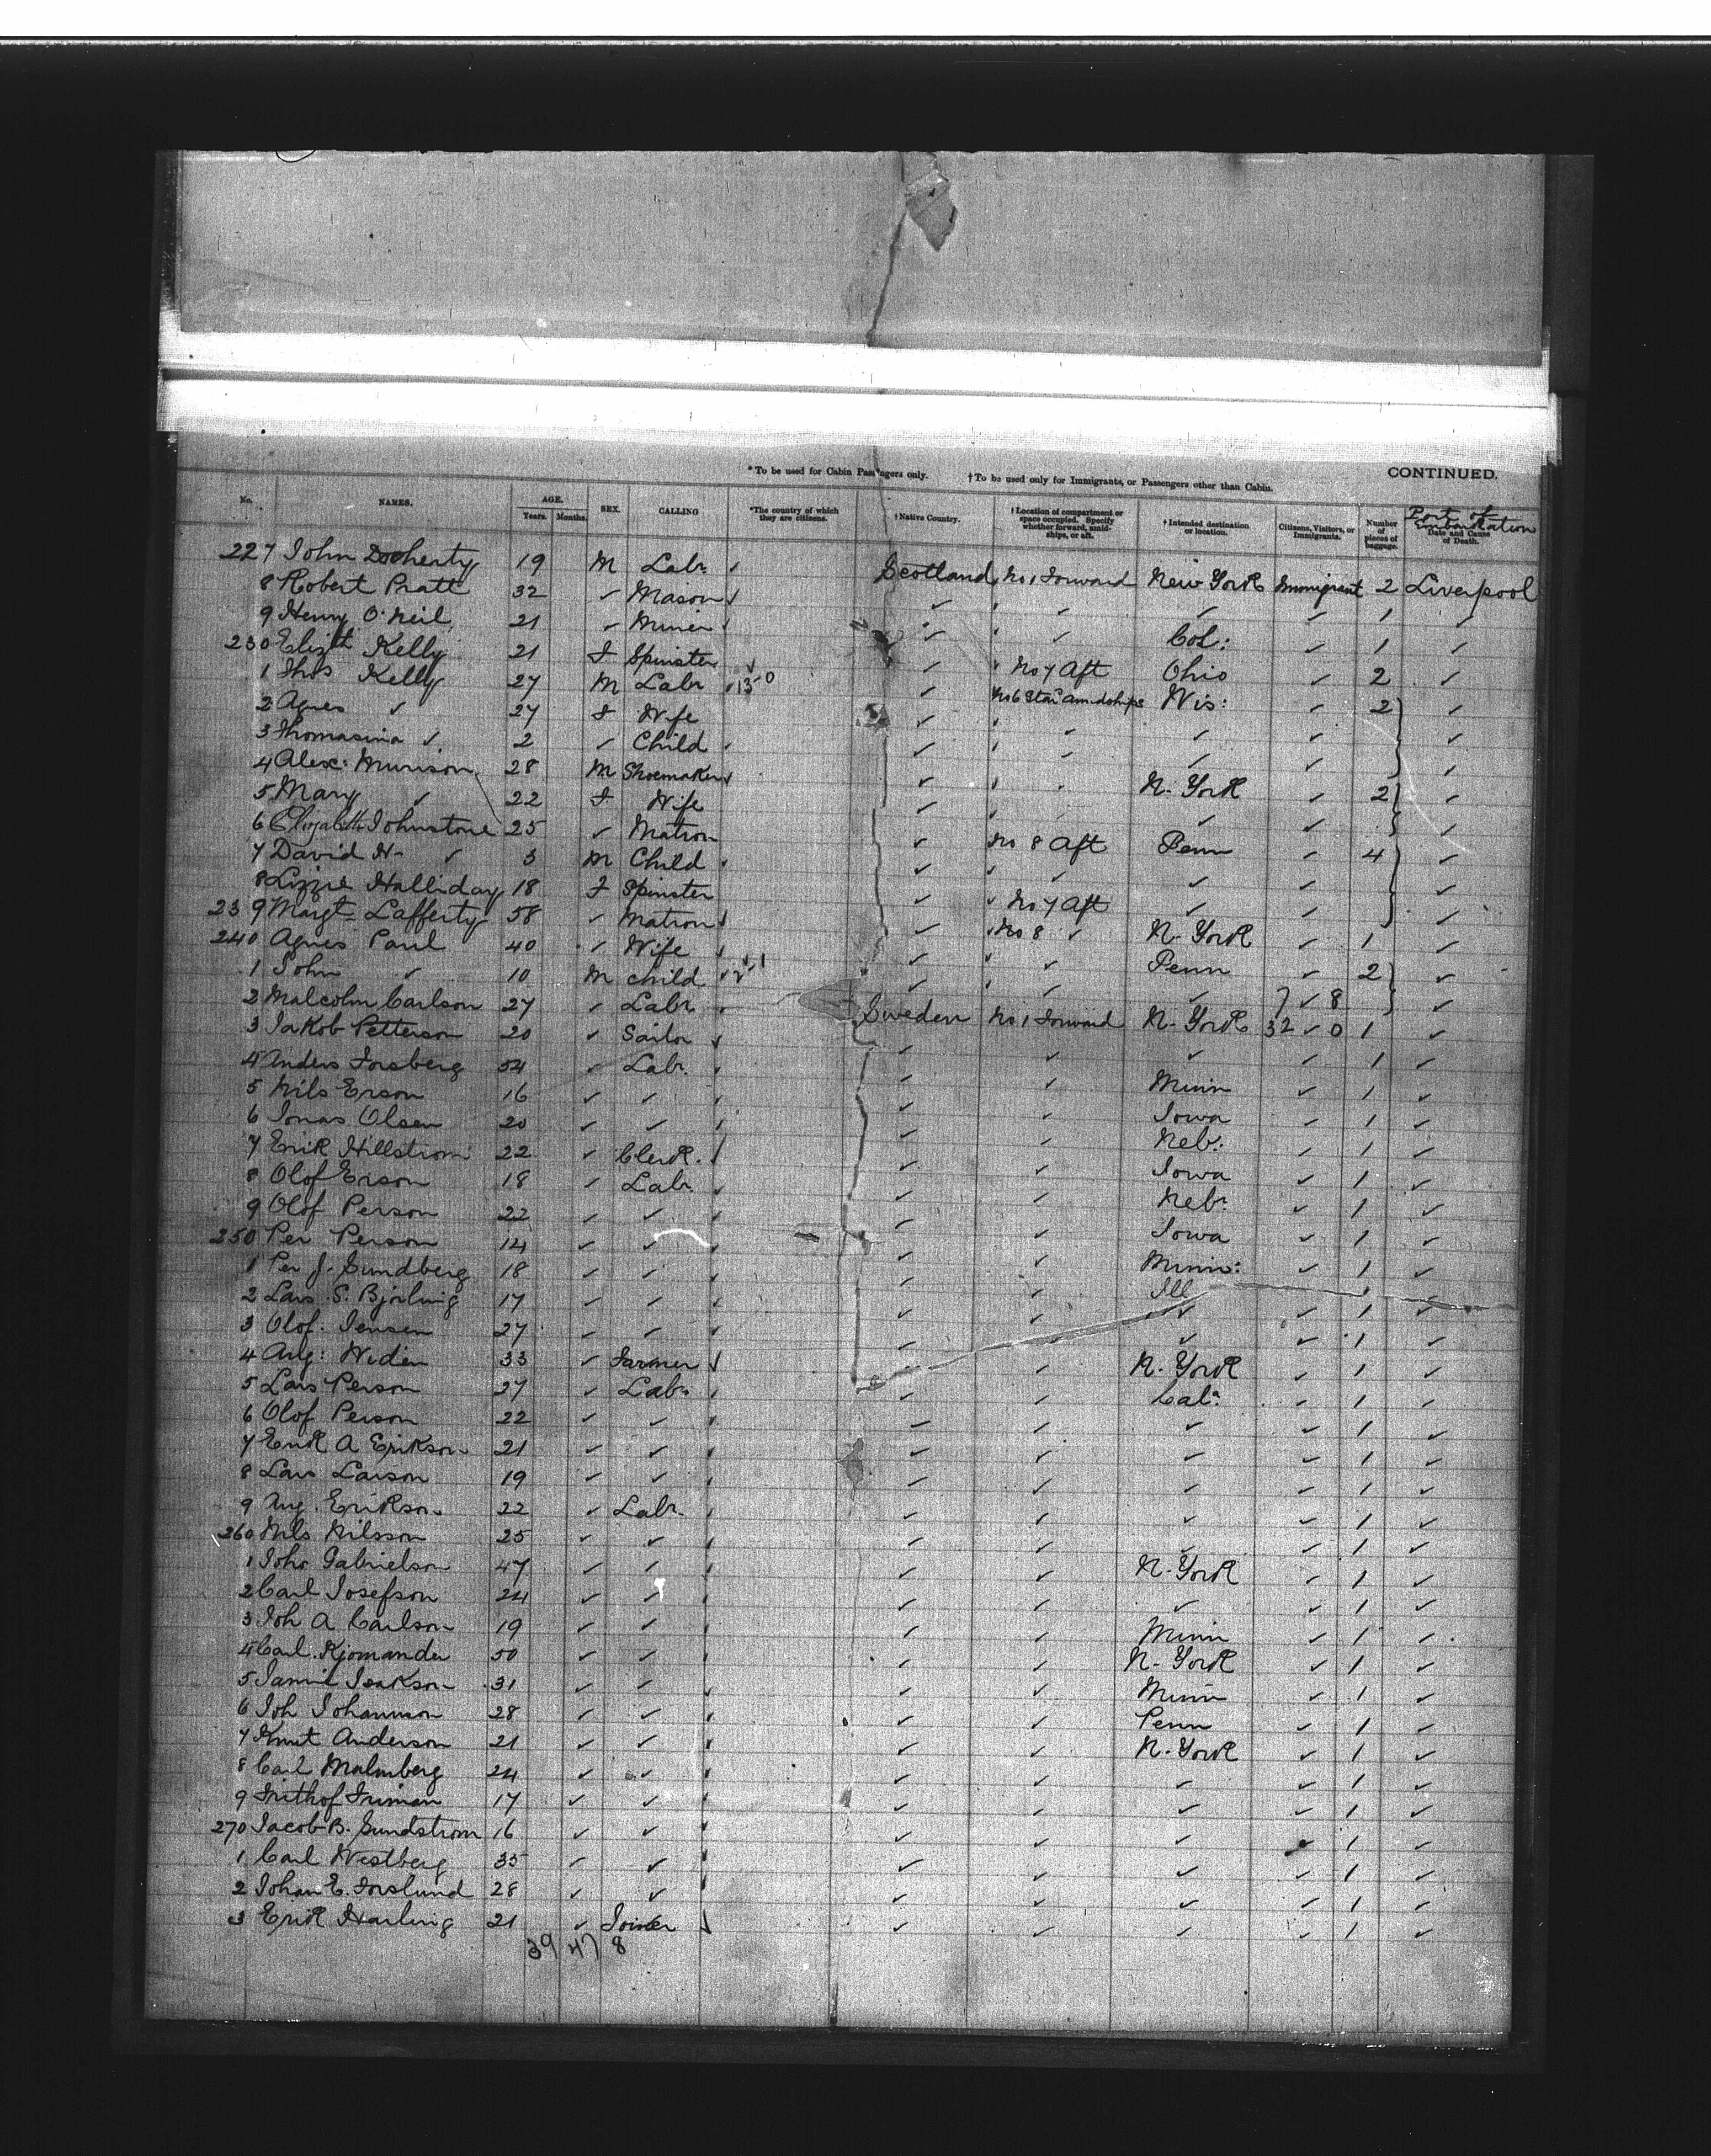 *To be used for Cabin Passengers only. †To be used only for Immigrants, or Passengers other than Cabin. CONTINUED.
No. NAMES. AGE. Years. Months. SEX. CALLING *The country of which they are citizens. †Native Country. †Location of compartment or space occupied. Specify whether forward, amidships, or aft. †Intended destination or location. Citizens, Visitors, or Immigrants. Number of pieces of baggage. Port of Embarkation Date and Cause of Death.
227 John Docherty 19 M Labr. Scotland No 1 Forward New York Immigrant 2 Liverpool
8 Robert Pratt 32 ✓ Mason ✓ ✓ ✓ ✓ 1 ✓
9 Henry O'Neil 21 ✓ Miner ✓ ✓ Col: ✓ 1 ✓
230 Elizth Kelly 21 F Spinster ✓ No 7 Aft Ohio ✓ 2 ✓
1 Thos Kelly 27 M Labr ✓ No 6 Star Amidships Wis: ✓ 2 ✓
2 Agnes ✓ 27 F Wife ✓ ✓ ✓ ✓ ✓
3 Thomasina ✓ 2 ✓ Child ✓ ✓ ✓ ✓ ✓
4 Alex: Murison 28 M Shoemaker ✓ N. York ✓ 2 ✓
5 Mary ✓ 22 F Wife ✓ ✓ ✓ ✓
6 Elizabeth Johnstone 25 ✓ Matron ✓ No 8 Aft Penn ✓ 4 ✓
7 David H- ✓ 3 M Child ✓ ✓ ✓ ✓ ✓
8 Lizzie Halliday 18 F Spinster ✓ No 7 Aft ✓ ✓ ✓
239 Margt Lafferty 58 ✓ Matron ✓ No 8 ✓ N. York ✓ 1 ✓
240 Agnes Paul 40 ✓ Wife ✓ ✓ Penn ✓ 2 ✓
1 John ✓ 10 M child ✓ ✓ ✓ ✓ 8 ✓
2 Malcolm Carlson 27 ✓ Labr Sweden No 1 Forward N. York 32 ✓ 0 1 ✓
3 Jakob Petterson 20 ✓ Sailor ✓ ✓ ✓ 1 ✓
4 Anders Forsberg 54 ✓ Labr. ✓ ✓ Minn ✓ 1 ✓
5 Nils Erson 16 ✓ ✓ ✓ ✓ Iowa ✓ 1 ✓
6 Jonas Olsen 20 ✓ ✓ ✓ ✓ Neb: ✓ 1 ✓
7 Erik Hillstrom 22 ✓ Clerk. ✓ ✓ Iowa ✓ 1 ✓
8 Olof Erson 18 ✓ Labr ✓ ✓ Neb: ✓ 1 ✓
9 Olof Person 22 ✓ ✓ ✓ ✓ Iowa ✓ 1 ✓
250 Per Person 14 ✓ ✓ ✓ ✓ Minn: ✓ 1 ✓
1 Per J. Sundberg 18 ✓ ✓ ✓ ✓ Ill ✓ 1 ✓
2 Lars S. Bjorling 17 ✓ ✓ ✓ ✓ ✓ ✓ 1 ✓
3 Olof. Jensen 27 ✓ ✓ ✓ ✓ ✓ 1 ✓
4 Aug: Widen 33 ✓ Farmer ✓ N. York ✓ 1 ✓
5 Lars Person 27 ✓ Labr ✓ ✓ Cala ✓ 1 ✓
6 Olof Person 22 ✓ ✓ ✓ ✓ ✓ ✓ 1 ✓
7 Erik A Erikson 21 ✓ ✓ ✓ ✓ ✓ ✓ 1 ✓
8 Lars Larson 19 ✓ ✓ ✓ ✓ ✓ ✓ 1 ✓
9 Aug. Erikson 22 ✓ Labr. ✓ ✓ ✓ ✓ 1 ✓
260 Nils Nilsson 25 ✓ ✓ ✓ ✓ ✓ ✓ 1 ✓
1 Johs Gabrielson 47 ✓ ✓ ✓ ✓ N. York ✓ 1 ✓
2 Carl Josefson 24 ✓ ✓ ✓ ✓ ✓ ✓ 1 ✓
3 Joh A Carlson 19 ✓ ✓ ✓ ✓ Minn ✓ 1 ✓
4 Carl. Kjomander 50 ✓ ✓ ✓ ✓ N. York ✓ 1 ✓
5 Isakson 31 ✓ ✓ ✓ ✓ Minn ✓ 1 ✓
6 Joh Johannson 28 ✓ ✓ ✓ ✓ Penn ✓ 1 ✓
7 Knut Anderson 21 ✓ ✓ ✓ ✓ N. York ✓ 1 ✓
8 Carl Malmberg 24 ✓ ✓ ✓ ✓ ✓ ✓ 1 ✓
9 Frithof Friman 17 ✓ ✓ ✓ ✓ ✓ ✓ 1 ✓
270 Jacob B. Sundstrom 16 ✓ ✓ ✓ ✓ ✓ 1 ✓
1 Carl Westberg 35 ✓ ✓ ✓ ✓ ✓ 1 ✓
2 Johan E. Forslund 28 ✓ ✓ ✓ ✓ ✓ ✓ 1 ✓
3 Erik Harling 21 ✓ Joiner ✓ ✓ ✓ ✓ 1 ✓
39 47 8